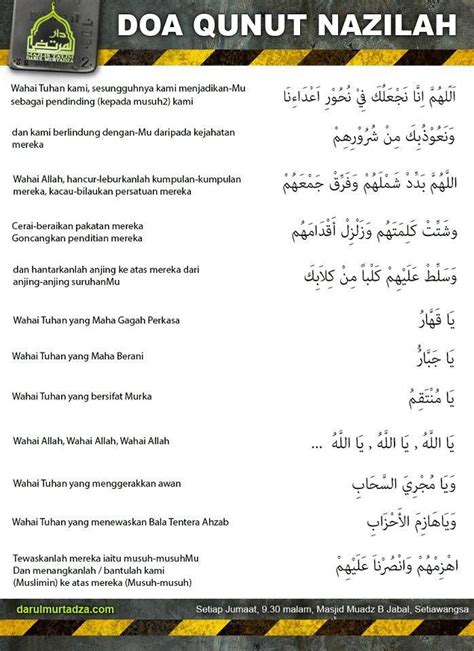 DOA QUNUT NAZILAH
دار
المرتضى
MAJLIS TA'LIM
DARUL MURTADZA
Wahai Tuhan kami, sesungguhnya kami menjadikan-Mu
sebagai pendinding (kepada musuh2) kami
اَللّٰهُمَّ اِنَّا نَجْعَلُكَ فِي نُحُوْرِ اَعْدَاءِنَا
dan kami berlindung dengan-Mu daripada kejahatan
mereka
وَنَعُوْذُبِكَ مِنْ شُرُوْرِهِمْ
Wahai Allah, hancur-leburkanlah kumpulan-kumpulan
mereka, kacau-bilaukan persatuan mereka
اللَّهُمَّ بَدِّدْ شَمْلَهُمْ وَفَرِّقْ جَمْعَهُمْ
Cerai-beraikan pakatan mereka
Goncangkan penditian mereka
وَشَتِّتْ كَلِمَتَهُمْ وَزَلْزِلْ أَقْدَامَهُمْ
dan hantarkanlah anjing ke atas mereka dari
anjing-anjing suruhanMu
وَسَلِّطْ عَلَيْهِمْ كَلْباً مِنْ كِلَابِكَ
Wahai Tuhan yang Maha Gagah Perkasa
يَا قَهَّارُ
Wahai Tuhan yang Maha Berani
يَا جَبَّارُ
Wahai Tuhan yang bersifat Murka
يَا مُنْتَقِمُ
Wahai Allah, Wahai Allah, Wahai Allah
يَا اللَّهُ , يَا اللَّهُ , يَا اللَّهُ ...
Wahai Tuhan yang menggerakkan awan
وَيَا مُجْرِيَ السَّحَابِ
Wahai Tuhan yang menewaskan Bala Tentera Ahzab
وَيَاهَازِمَ الأَحْزَابِ
Tewaskanlah mereka iaitu musuh-musuhMu
Dan menangkanlah / bantulah kami
(Muslimin) ke atas mereka (Musuh-musuh)
اهْزِمْهُمْ وَانْصُرْنَا عَلَيْهِمْ
darulmurtadza.com
Setiap Jumaat, 9.30 malam, Masjid Muadz B Jabal, Setiawangsa